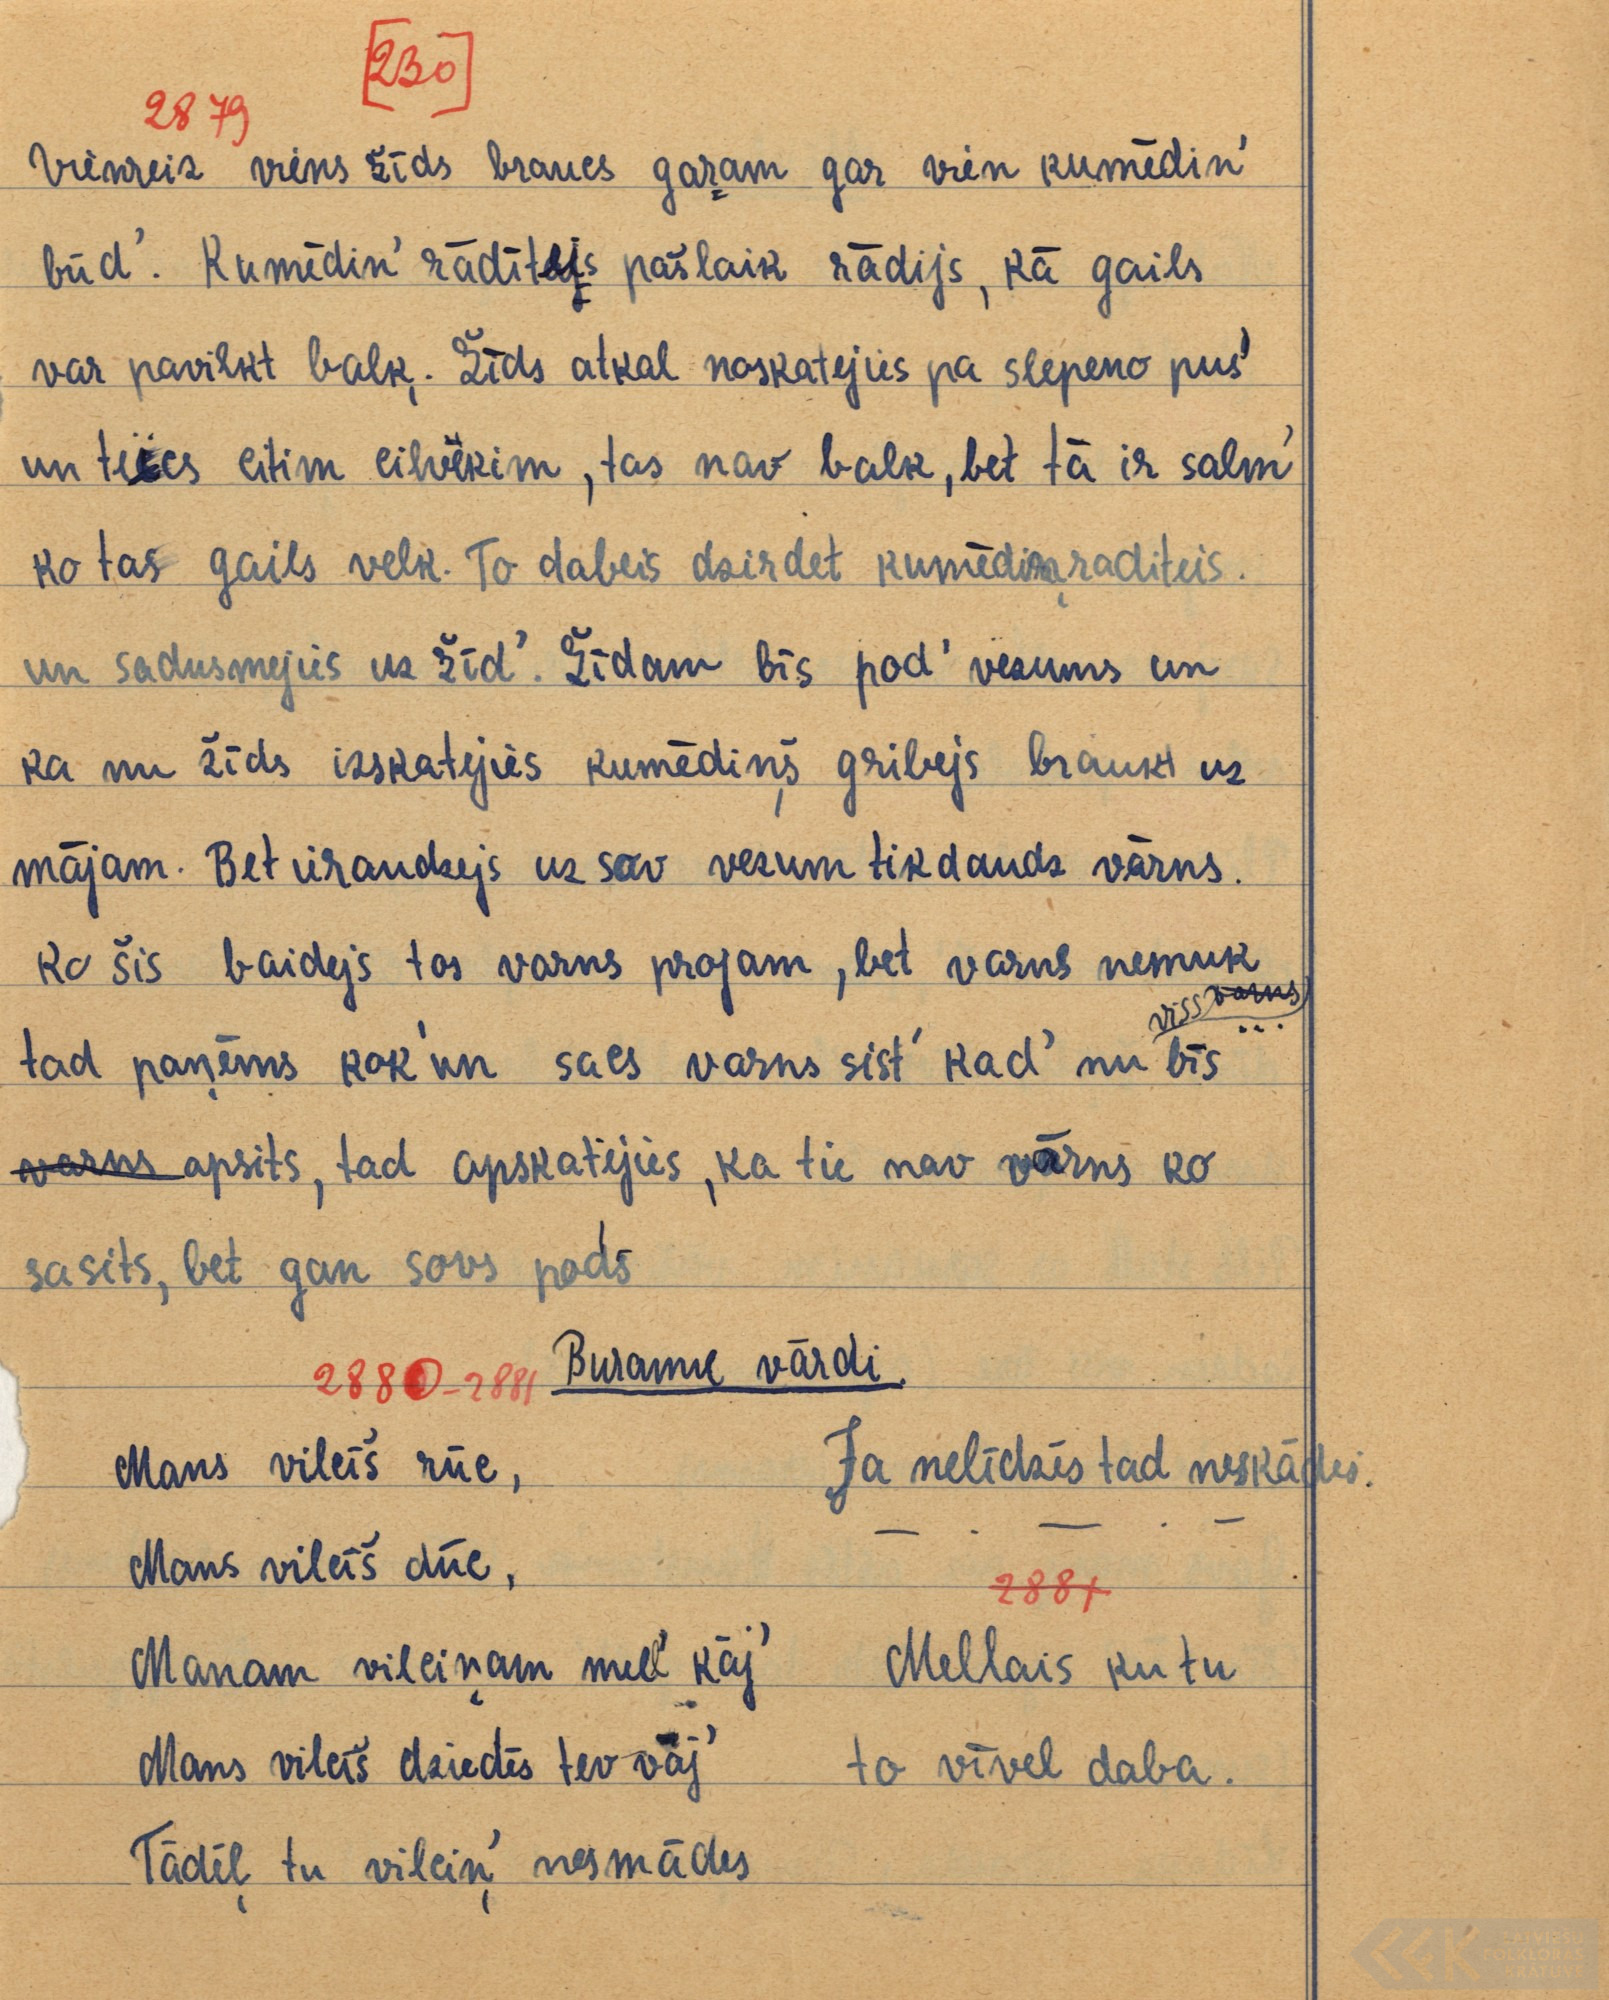 [230]
2879
Vienreiz viens žīds braucs gaŗam gar vien kumēdin'
būd'. Kumēdin' rādītejs pašlaik rādijs, kā gails
var pavilkt baļķ. Žīds atkal noskatejies pa slepeno pus'
un teics citim cilvēkim, tas nav balk, bet tā ir salm'
ko tas gails velk. To dabeis dzirdet kumēdiņraditeis.
un sadusmejies uz žīd'. Žīdam bīs pod' vezums un
ka nu žīds izskatejies kumēdiņš gribejs braukt uz
mājam. Bet ieraudzejs uz sav vezum tik daudz vārns.
Ko šis baidejs tos varns projam, bet varns nemuk
viss varns
tad paņēms kok' un sacs varns sist' kad' nu bīs
varns apsits, tad apskatejies, ka tie nav vārns ko
sasits, bet gan sovs pods
2880-2881 Buramie vārdi.
Mans vilcīš rūc,
Mans vilcīš dūc,
Manam vilciņam mell' kāj'
Mans vilcīš dziedēs tev vāj'
Tādēļ tu vilciņ' nesmādes
Ja nelīdzēs tad neskādes.
2881
Mellais ku tu
to vīvel daba.